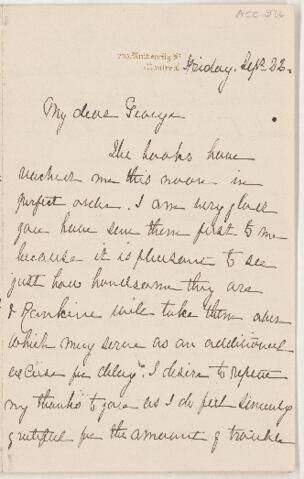 ACC 576
University St
Montreal
Friday. Sept. 22.
My dear George
The books have
reached me this noon in
perfect order. I am very glad
you have sent them first to me
because it is pleasant to see
just how handsome they are
& Rankine will take them over
which may serve as an additional
excuse for delay. I desire to repeat
my thanks to you as I do feel sincerely
grateful for the amount of trouble